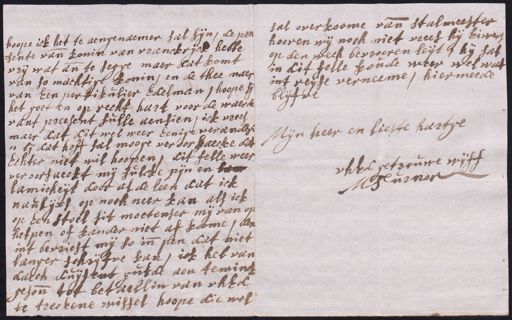 hoope ick het te aengenaemer sal sijn, de pre
sente van konin van vranckrijck hebbe
vrij wat an te segge maer dat komt
van so machtige konin, en de thee maer
van Een pertikulier Edelman, hoope hij
het soet en op recht hart voor de waerde
vant present sulle aensien, ick vrees
maer dat dit wel weer Eenige verandering
in tij dat hoff sal mooge veroorsaecke dat
Echter niet wil hoopen, dit felle weer
veroorsaeckt mij sulcke pijn en
lamicheijt door al de leen dat ick
naulijcx op nooch neer kan als ick
op Een stoel sit moetense mij van op
helpen of kander niet af koome, den
int bervriest mij so in pen dat niet
langer schrijve kan, ick heb van
daech
tot betaellin van uhEd
te treckene wissel hoope die wel
sal overkoome van Stalmeester
hooren wij noch niet vrees hij Eiwers
op den wech bevrooren leijt, hij sal
in dit felle koude weer wel wat
int reijse verneeme, hiermeede
blijfve
Mijn heer en liefste hartge
uhEd getrouwe wijff
M Turnor